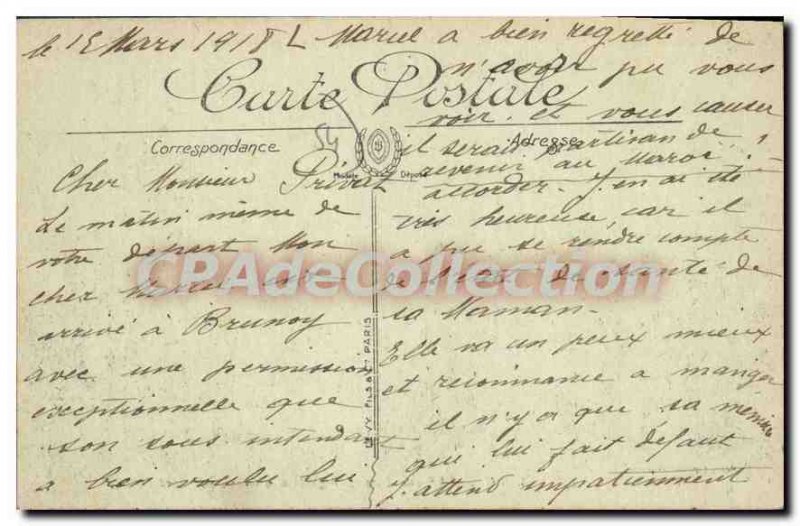 le 15 Mars 1918
Carte Postale
Correspondance
Cher Monsieur Privat
Le matin même de
votre départ Mon
cher Marcel est
arrivé à Brunoy
avec une permission
exceptionnelle que
son sous intendant
a bien voulu lui
Marcel a bien regretté de
n'avoir pu vous
voir et vous causer
Adresse
il serait partisan de
revenir au Maroc
accorder. J'en ai été
très heureuse, car il
a pu se rendre compte
de l'état de santé de
sa Maman.
Elle va un peux mieux
et recommance a manger
il n'y a que sa mémoire
qui lui fait défaut
J'attend impatiemment
Modèle Déposé
LÉVY FILS & Cie PARIS
CPAdeCollection